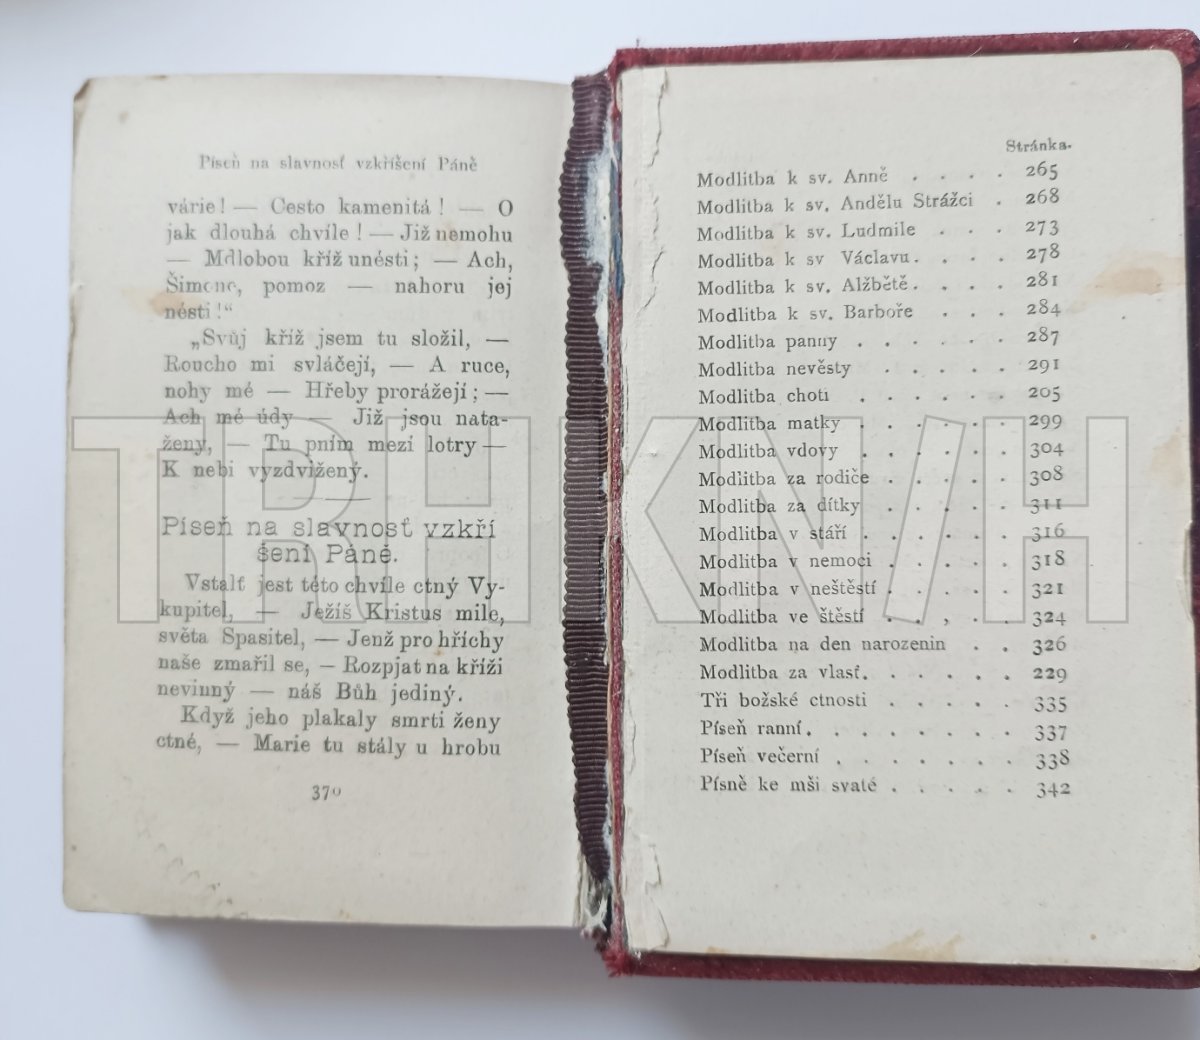 Píseň na slavnosť vzkříšení Páně
várie! — Cesto kamenitá! — O
jak dlouhá chvíle! — Již nemohu
— Mdlobou kříž unésti; — Ach,
Šimone, pomoz — nahoru jej
nésti!“
„Svůj kříž jsem tu složil, —
Roucho mi svláčejí, — A ruce,
nohy mé — Hřeby prorážejí; —
Ach mé údy — Již jsou nata-
ženy, — Tu pním mezi lotry —
K nebi vyzdvižený.
Píseň na slavnosť vzkří
šení Páně.
Vstalť jest této chvíle ctný Vy-
kupitel, — Ježíš Kristus mile,
světa Spasitel, — Jenž pro hříchy
naše zmařil se, — Rozpjat na kříži
nevinný — náš Bůh jediný.
Když jeho plakaly smrti ženy
ctné, — Marie tu stály u hrobu
370
Stránka.
Modlitba k sv. Anně . . . . 265
Modlitba k sv. Andělu Strážci . 268
Modlitba k sv. Ludmile . . . 273
Modlitba k sv Václavu . . . . 278
Modlitba k sv. Alžbětě . . . . 281
Modlitba k sv. Barboře . . . 284
Modlitba panny . . . . . . 287
Modlitba nevěsty . . . . . 291
Modlitba choti . . . . . . 205
Modlitba matky . . . . . . 299
Modlitba vdovy . . . . . . 304
Modlitba za rodiče . . . . . 308
Modlitba za dítky . . . . . 311
Modlitba v stáří . . . . . . 316
Modlitba v nemoci . . . . . 318
Modlitba v neštěstí . . . . . 321
Modlitba ve štěstí . . , . . 324
Modlitba na den narozenin . . 326
Modlitba za vlasť. . . . . . 229
Tři božské ctnosti . . . . . 335
Píseň ranní . . . . . . . . 337
Píseň večerní . . . . . . . 338
Písně ke mši svaté . . . . . 342
TRHKNIH